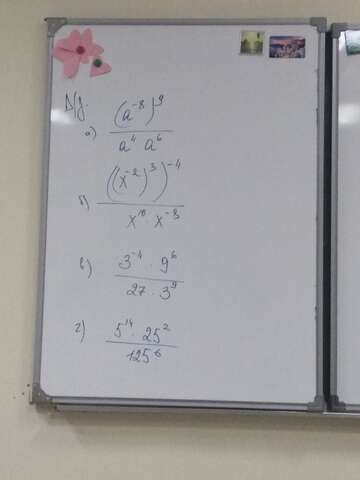 Д/з.
а) (a⁻⁸)⁹ / a⁴ a⁶
б) ((x⁻²)³)⁻⁴ / x¹⁰ · x⁻³
в) 3⁻⁴ · 9⁶ / 27 · 3⁹
г) 5¹⁴ · 25² / 125⁶